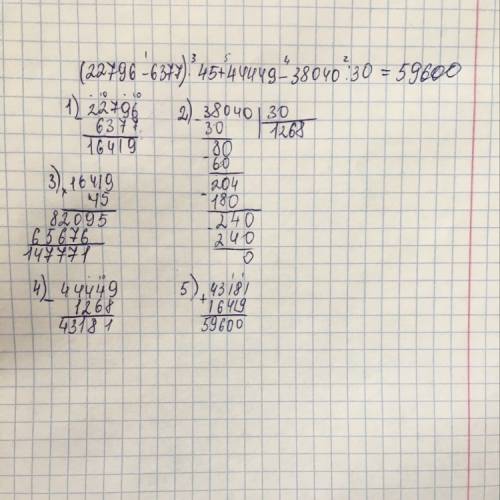 (22796 - 6377) · 45 + 44449 - 38040 : 30 = 59600
1 3 5 4 2
1) - 22796
6377
16419
2) - 38040 | 30
30 1268
- 80
60
- 204
180
- 240
240
0
3) × 16419
45
82095
65676
147771
4) - 44449
1268
43181
5) + 43181
16419
59600